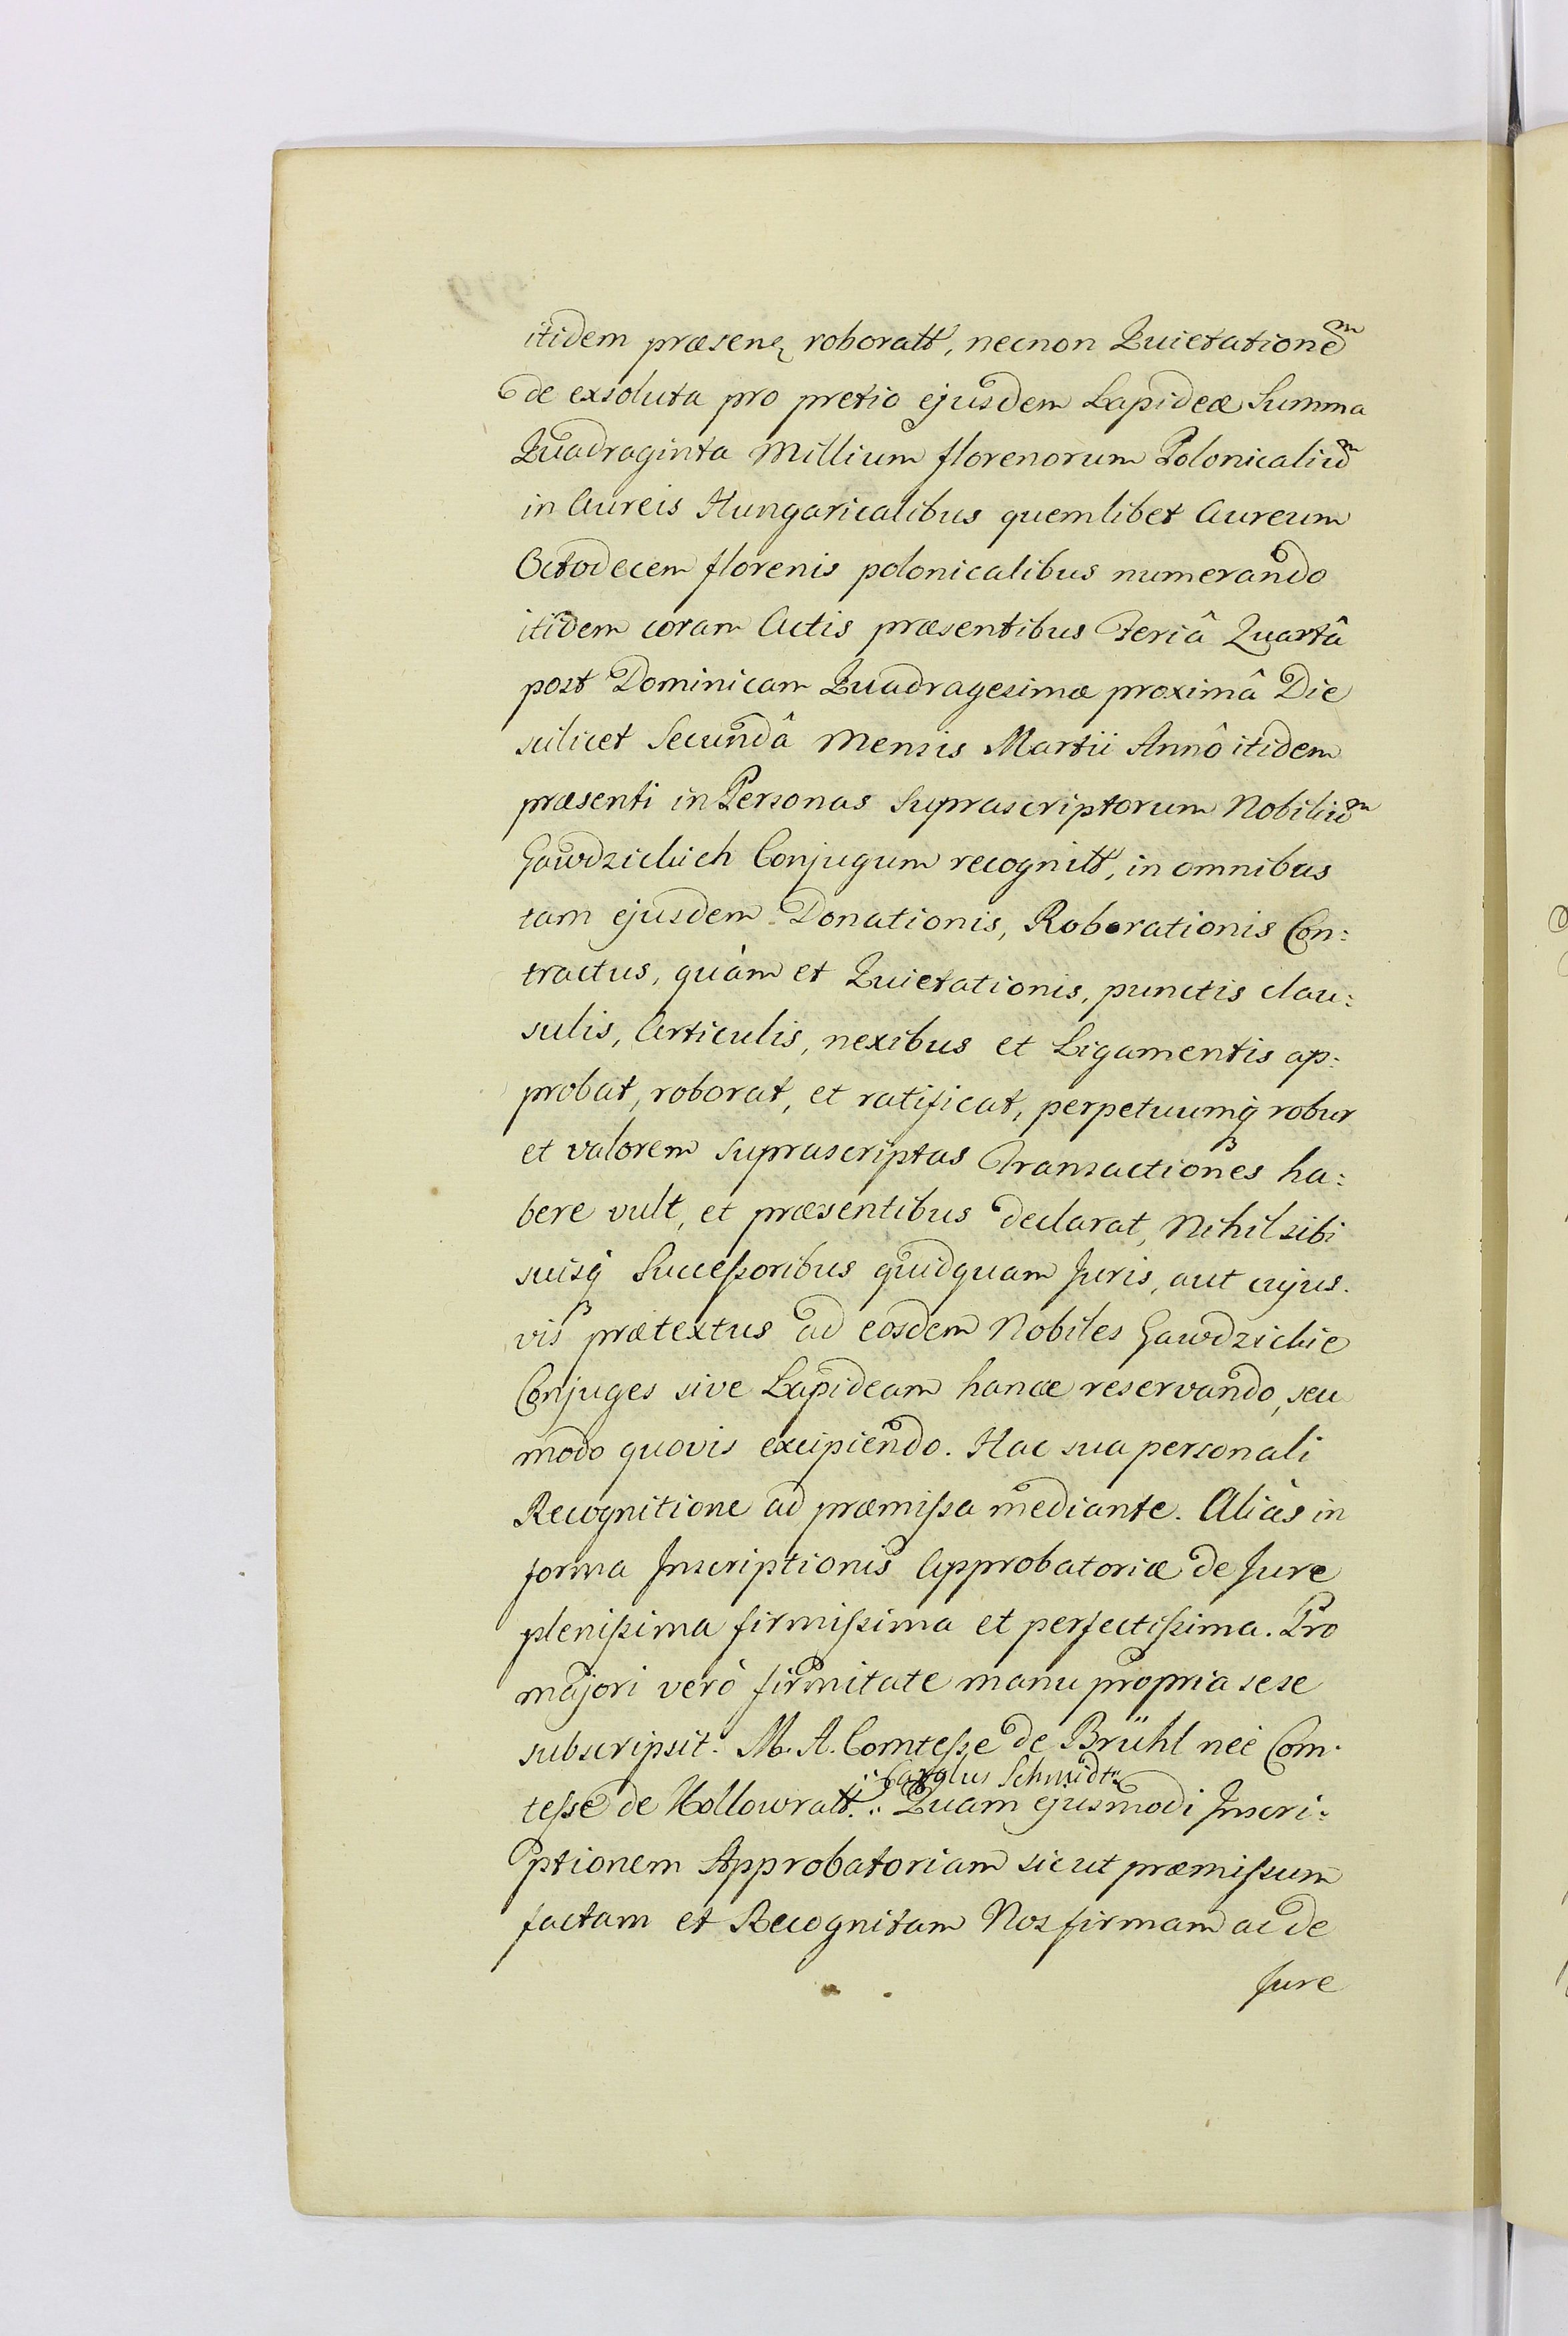 itidem præsenᵹ roboratt, necnon Quietatione͂m
de exsoluta pro pretio ejusdem Lapideæ Summa
Quadraginta Millium florenorum Polonicaliu͂m
in Aureis Hungaricalibus quemlibet Aureum
Octodecem florenis polonicalibus numerando
itidem coram Actis præsentibus Feriâ Quartâ
post Dominicam Quadragesimæ proximâ Die
scilicet Secundâ Mensis Martii Annô itidem
præsenti in Personas Suprascriptorum Nobiliu͂m
Gawdzickich Conjugum recognitt, in omnibus
tam ejusdem Donationis, Roborationis Con:
tractus, quàm et Quietationis, punctis clau:
sulis, Articulis, nexibus et Ligamentis ap:
probat, roborat, et ratificat, perpetuumq́ robur
et valorem suprascriptas Transactiones ha:
bere vult, et præsentibus declarat, Nihil sibi
suisq́ Succeſsoribus quidquam Juris, aut cujus.
vis prætextus ad eosdem Nobiles Gawdzickie
Conjuges sive Lapideam hancce reservando, seu
modo quovis excipiendo. Hac sua personali
Recognitione ad præmiſsa mediante. Aliàs in
forma Inscriptionis Approbatoriæ de Jure
pleniſsima firmiſsima et perfectiſsima. Pro
majori verò firmitate manu propria sese
subscripsit. M. A. Comteſse de Brühl neé Com.
Carolus Schmidt
teſse de Kollowratt. Quam ejusmodi Inscri:
ptionem Approbatoriam sicut præmiſsum
factam et Recognitam Nos firmam ac de
Jure